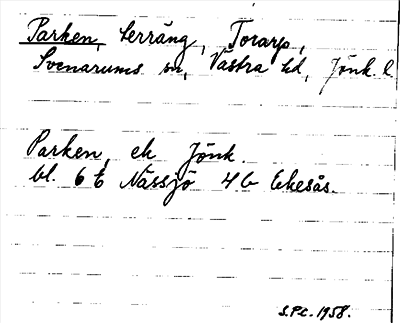 Parken, terräng, Torarp,
Svenarums sn, Västra hd, Jönk. l
Parken, ek Jönk.
bl. 6 E Nässjö 4 b Ekesås.
S.Pl. 1958.